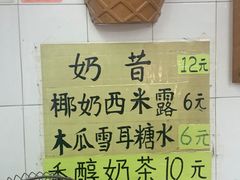 奶昔 12元
椰奶西米露 6元
木瓜雪耳糖水 6元
香醇奶茶 10元